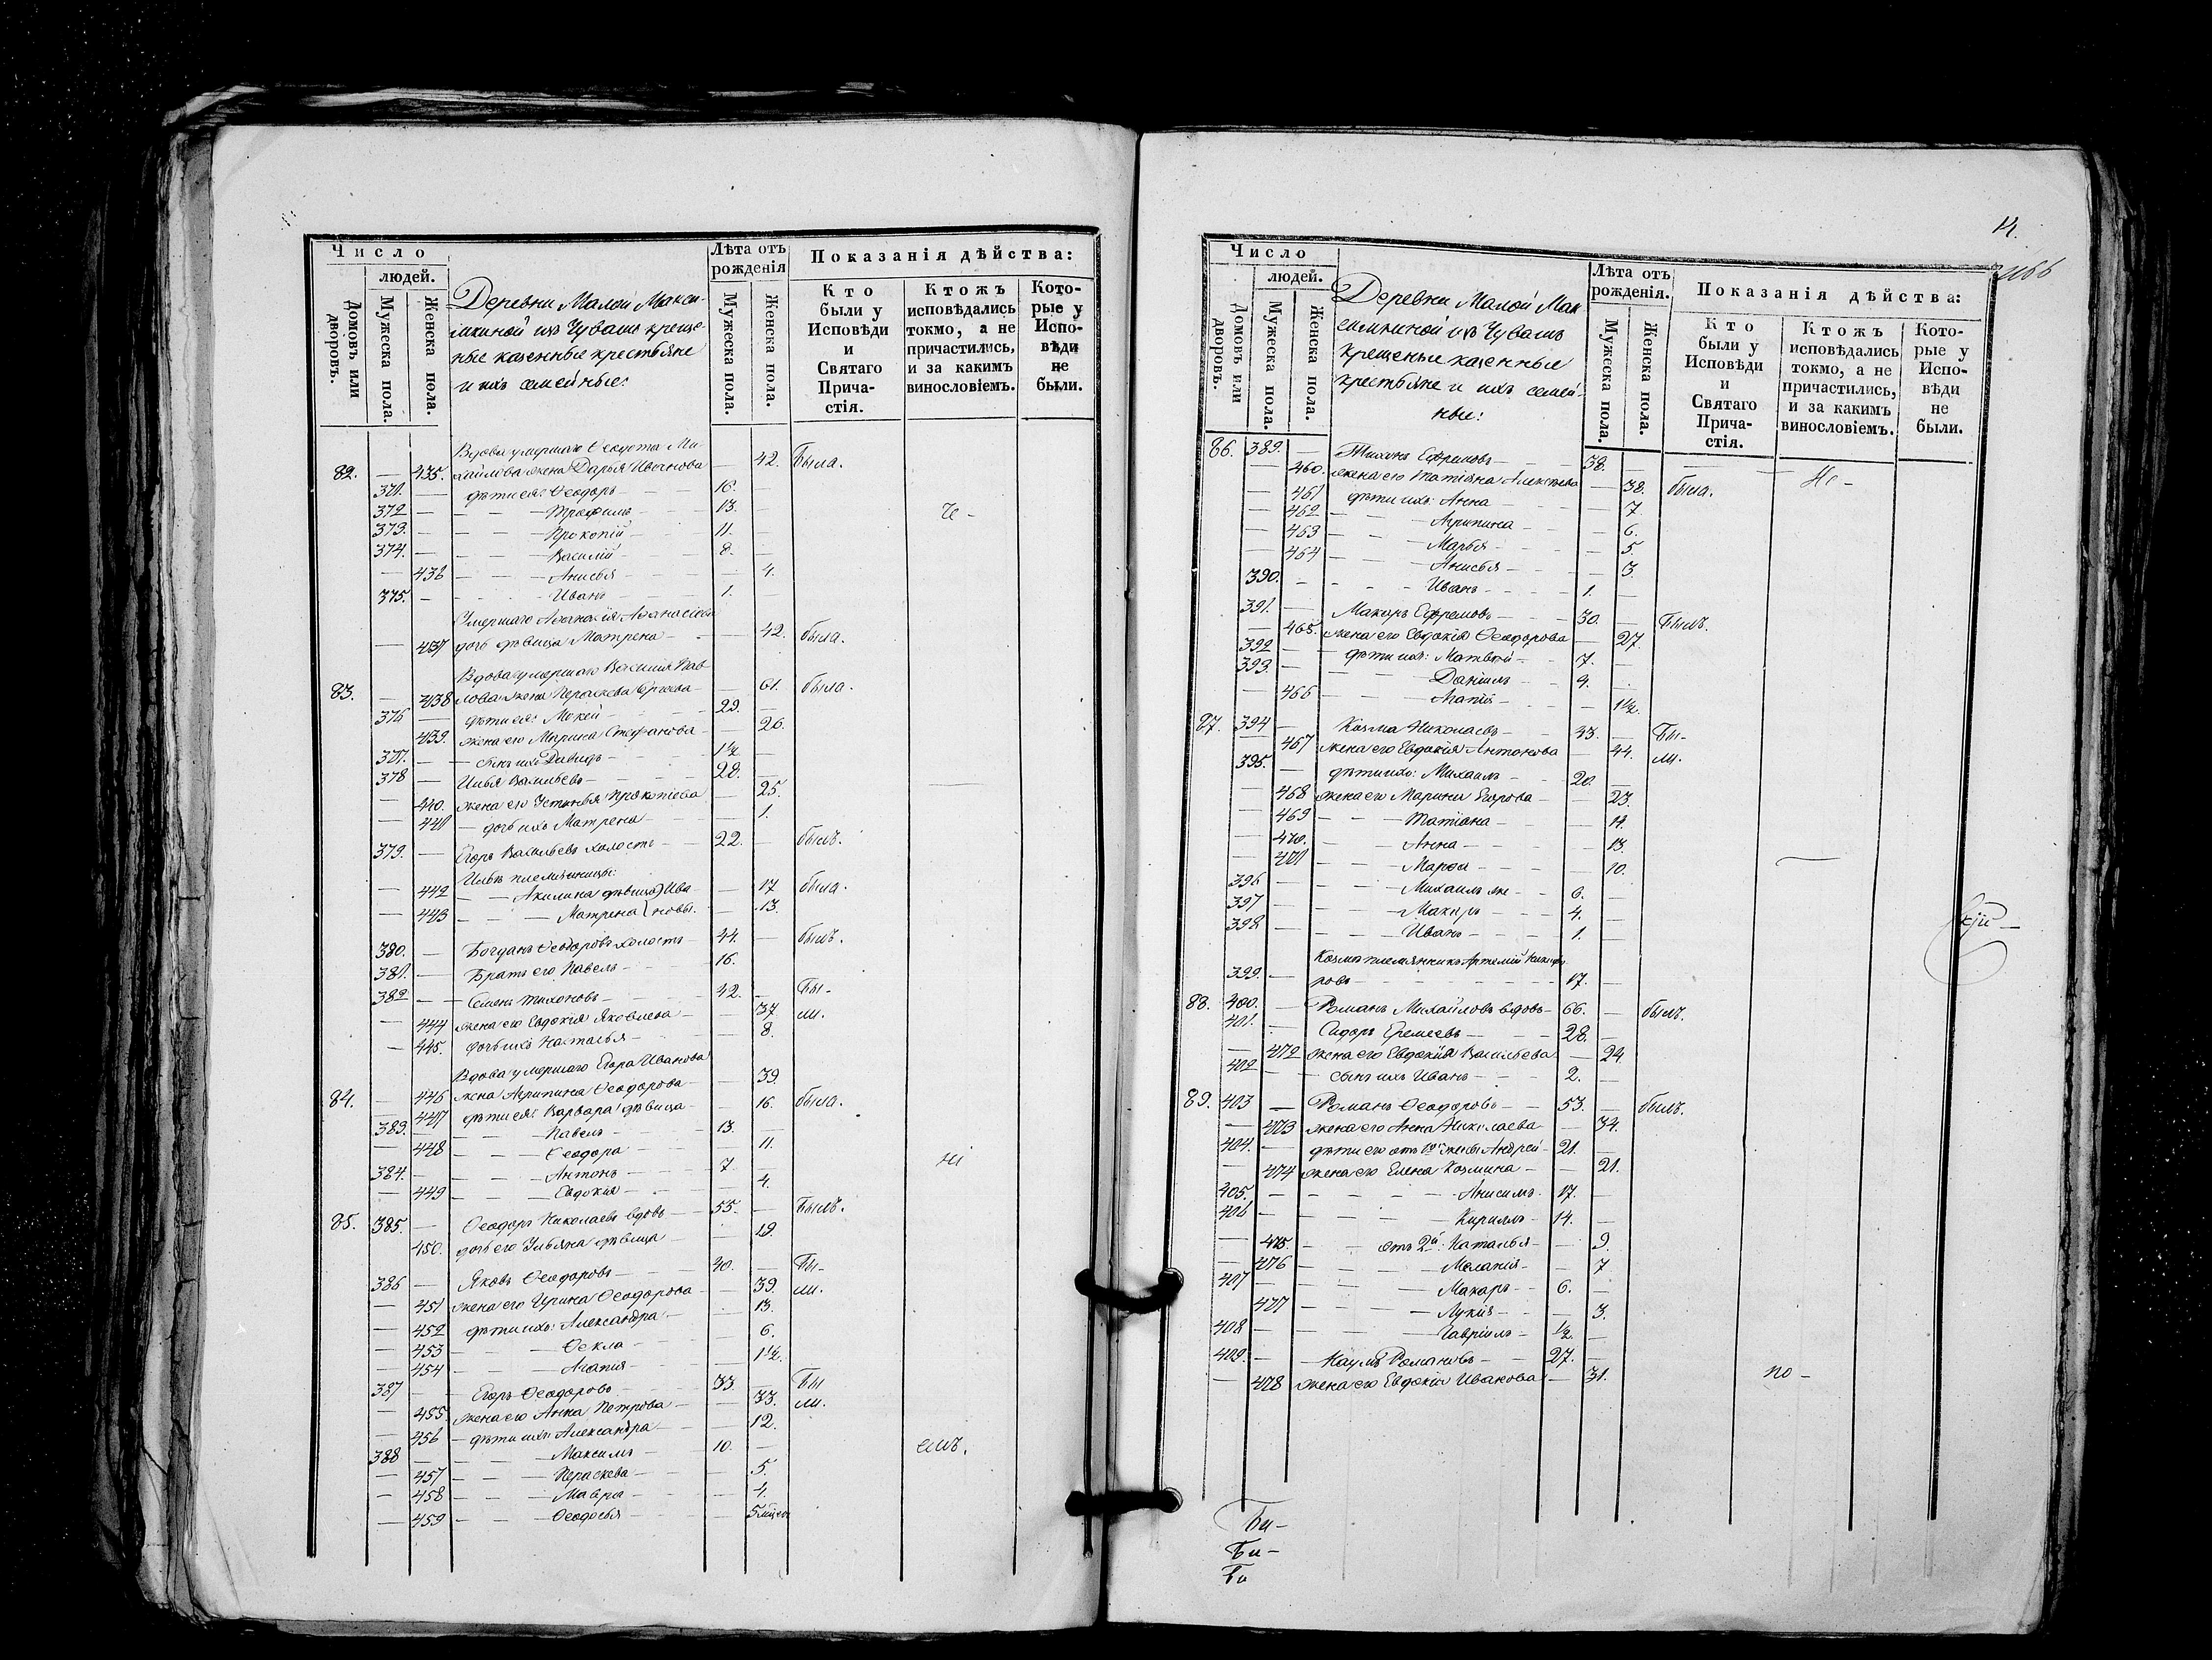 Число
людей.
Домовъ или дворовъ.
Мужеска пола.
Женска пола.
Деревни Малой Макси-
мкиной изъ Чувашъ креще-
ные казенные крестьяне
и ихъ семейные:
Лѣта отъ
рожденія
Мужеска пола.
Женска пола.
Показанія дѣйства:
Кто
были у
Исповѣди
и
Святаго
Прича-
стія.
Ктожъ
исповѣдались
токмо, а не
причастились,
и за какимъ
винословіемъ.
Кото-
рые у
Испо-
вѣди
не
были.
Вдова умершаго Ѳеодота Ми-
82. — 435. хайлова жена Дарья Иванова — 42. Была.
371. — дѣти ея: Ѳеодоръ — 16. —
372 — Трофимъ — 13.
373. — Прокопій — 11. —
374. — Василій — 8. —
— 436 Анисья — 4.
375. — Иванъ — 1. —
Умершаго Афанасія Афанасіева
— 437 дочь дѣвица Матрена — 42. была.
Вдова умершаго Василія Пав-
83. — 438 лова жена Параскева Сергеева — 61. была.
376 — дѣти ея: Мокей — 29. —
439. жена его Марина Стефанова — 26.
377. — сынъ ихъ Давидъ — 1½ —
378 — Илья Васильевъ — 28. —
— 440. жена его Устинья Прокопіева — 25.
— 441 — дочь ихъ Матрена — 1.
379. — Егоръ Васильевъ холостъ — 22. — былъ.
Ильи племянницы:
— 442 — Акилина дѣвица) Ива- — 17 была.
— 443 — Матрена) новы. — 13.
380. — Богданъ Ѳеодоровъ холостъ — 44. — былъ.
381. — Братъ его Павелъ — 16.
382 — Семенъ Тихоновъ — 42. — Бы-
— 444 жена его Евдокія Яковлева — 37 ли.
— 445. дочь ихъ Наталья — 8.
Вдова умершаго Егора Иванова
84. — 446 жена Агрипина Ѳеодорова — 39. была.
— 447 дѣти ея: Варвара дѣвица — 16.
383. — Павелъ — 13. —
— 448 — Ѳеодора — 11.
384. — Антонъ — 7. —
— 449 — Евдокія — 4.
85. 385. — Ѳеодоръ Николаевъ вдовъ — 55. — Былъ.
450. дочь его Ульяна дѣвица — 19.
386 — Яковъ Ѳеодоровъ — 40. — Бы-
— 451 жена его Ирина Ѳеодорова — 39. ли.
— 452 дѣти ихъ: Александра — 13.
— 453 — Ѳекла — 6.
— 454 — Агапія — 1½.
387 — Егоръ Ѳеодоровъ — 33. — Бы
— 455. жена его Анна Петрова — 33. ли.
— 456 — дѣти ихъ: Александра — 12.
388 — Максимъ — 10. —
— 457 — Параскева — 5.
— 458 — Мавра — 4.
— 459 — Ѳеодосья — 5 мѣсец
14.
1166
Число
людей.
Домовъ или дворовъ.
Мужеска пола.
Женска пола.
Деревни Малой Мак
симкиной изъ Чувашъ
крещеные казенные
крестьяне и ихъ семей-
ные:
Лѣта отъ
рожденія.
Мужеска пола.
Женска пола.
Показанія дѣйства:
Кто
были у
Исповѣди
и
Святаго
Прича-
стія.
Ктожъ
исповѣдались
токмо, а не
причастились,
и за какимъ
винословіемъ.
Кото-
рые у
Испо-
вѣди
не
были.
86. 389. — Тихонъ Ефремовъ — 38. —
— 460. жена его Татіана Алексѣева — 38. была.
— 461 дѣти ихъ: Анна — 7
— 462 — Агрипина — 6.
— 463 — Марья — 5.
— 464 — Анисья — 3.
390. — Иванъ — 1. —
391. — Макаръ Ефремовъ — 30. — Былъ.
— 465. жена его Евдокія Ѳеодорова — 27.
392 — дѣти ихъ: Матвѣй — 7. —
393. — Даніилъ — 4. —
— 466 — Агапія — 1½.
87. 394 — Козма Николаевъ — 43. — Бы-
— 467 жена его Евдокія Антонова — 44. ли.
395. — дѣти ихъ: Михаилъ — 20. —
— 468 жена его Марина Егорова — 23.
— 469 — Татіана — 14.
— 470. — Анна — 13.
— 471 — Марѳа — 10.
396 — Михаилъ же — 6. —
397 — Макаръ — 4. —
398 — Иванъ — 1. —
Козмы племянникъ Артемій Никифо
399. — ровъ — 17. —
88. 400. — Романъ Михайловъ вдовъ — 66. — былъ.
401. — Сидоръ Еремеевъ — 28. —
— 472 жена его Евдокія Васильева — 24.
402 — сынъ ихъ Иванъ — 2. —
89. 403 — Романъ Ѳеодоровъ — 53. — былъ.
— 473 жена его Анна Николаева — 34.
404. — дѣти его отъ 1й жены Андрей — 21. —
— 474 жена его Елена Козмина — 21.
405. — Анисимъ — 17. —
406 — Кириллъ — 14. —
— 475. — отъ 2й: Наталья — 9.
— 476 — Маланія — 7
407 — Макаръ — 6. —
— 477 — Лукія — 3.
408 — Гавріилъ — ½ —
409. — Наумъ Романовъ — 27. —
— 478 жена его Евдокія Иванова — 31.
по -
кій -